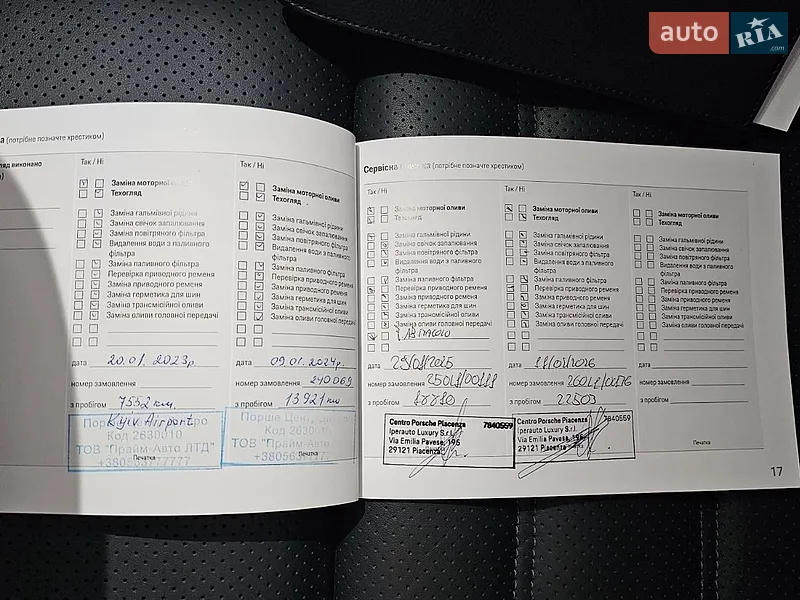 auto RIA .com
(потрібне позначте хрестиком)
Так / Ні
Заміна моторної
Техогляд
Заміна гальмівної рідини
Заміна свічок запалювання
Заміна повітряного фільтра
Видалення води з паливного
фільтра
Заміна паливного фільтра
Перевірка приводного ременя
Заміна приводного ременя
Заміна герметика для шин
Заміна трансмісійної оливи
Заміна оливи головної передачі
дата 20.01.2023р.
номер замовлення
з пробігом 7552 км.
Kyiv Airport
Код 2630010
ТОВ "Прайм-Авто ЛТД"
+380563777777
Печатка
Так / Ні
Заміна моторної оливи
Техогляд
Заміна гальмівної рідини
Заміна свічок запалювання
Заміна повітряного фільтра
Видалення води з паливного
фільтра
Заміна паливного фільтра
Перевірка приводного ременя
Заміна приводного ременя
Заміна герметика для шин
Заміна трансмісійної оливи
Заміна оливи головної передачі
дата 09.01.2024р.
номер замовлення 240069
з пробігом 13921 км
Порше Центр
Код 2630010
ТОВ "Прайм-Авто
Печатка
Сервісна
(потрібне позначте хрестиком)
Так / Ні
Заміна моторної оливи
Техогляд
Заміна гальмівної рідини
Заміна свічок запалювання
Заміна повітряного фільтра
Видалення води з паливного
фільтра
Заміна паливного фільтра
Перевірка приводного ременя
Заміна приводного ременя
Заміна герметика для шин
Заміна трансмісійної оливи
Заміна оливи головної передачі
дата
номер замовлення
з пробігом
Centro Porsche Piacenza 7840559
Iperauto Luxury S.r.l.
Via Emilia Pavese, 196
29121 Piacenza
Так / Ні
Заміна моторної оливи
Техогляд
Заміна гальмівної рідини
Заміна свічок запалювання
Заміна повітряного фільтра
Видалення води з паливного
фільтра
Заміна паливного фільтра
Перевірка приводного ременя
Заміна приводного ременя
Заміна герметика для шин
Заміна трансмісійної оливи
Заміна оливи головної передачі
дата
номер замовлення
з пробігом 22503
Centro Porsche Piacenza 7840559
Iperauto Luxury S.r.l.
Via Emilia Pavese, 196
29121 Piacenza
Так / Ні
Заміна моторної оливи
Техогляд
Заміна гальмівної рідини
Заміна свічок запалювання
Заміна повітряного фільтра
Видалення води з паливного
фільтра
Заміна паливного фільтра
Перевірка приводного ременя
Заміна приводного ременя
Заміна герметика для шин
Заміна трансмісійної оливи
Заміна оливи головної передачі
дата
номер замовлення
з пробігом
Печатка
17